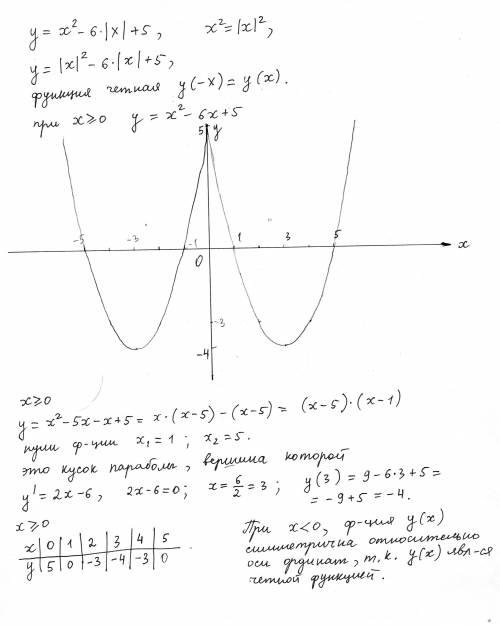 y = x² - 6·|x| + 5, x² = |x|²,
y = |x|² - 6·|x| + 5,
функция четная y(-x) = y(x).
при x ⩾ 0 y = x² - 6x + 5
5 y
-5 -3 -1 1 3 5 x
0
-3
-4
x ⩾ 0
y = x² - 5x - x + 5 = x·(x-5) - (x-5) = (x-5)·(x-1)
нули ф-ции x₁ = 1 ; x₂ = 5.
это кусок параболы, вершина которой
y' = 2x - 6, 2x - 6 = 0; x = 6/2 = 3 ; y(3) = 9 - 6·3 + 5 =
= -9 + 5 = -4.
x ⩾ 0
x | 0 | 1 | 2 | 3 | 4 | 5
y | 5 | 0 | -3 | -4 | -3 | 0 .
При x < 0, ф-ция y(x)
симметрична относительно
оси ординат, т.к. y(x) явл-ся
четной функцией.